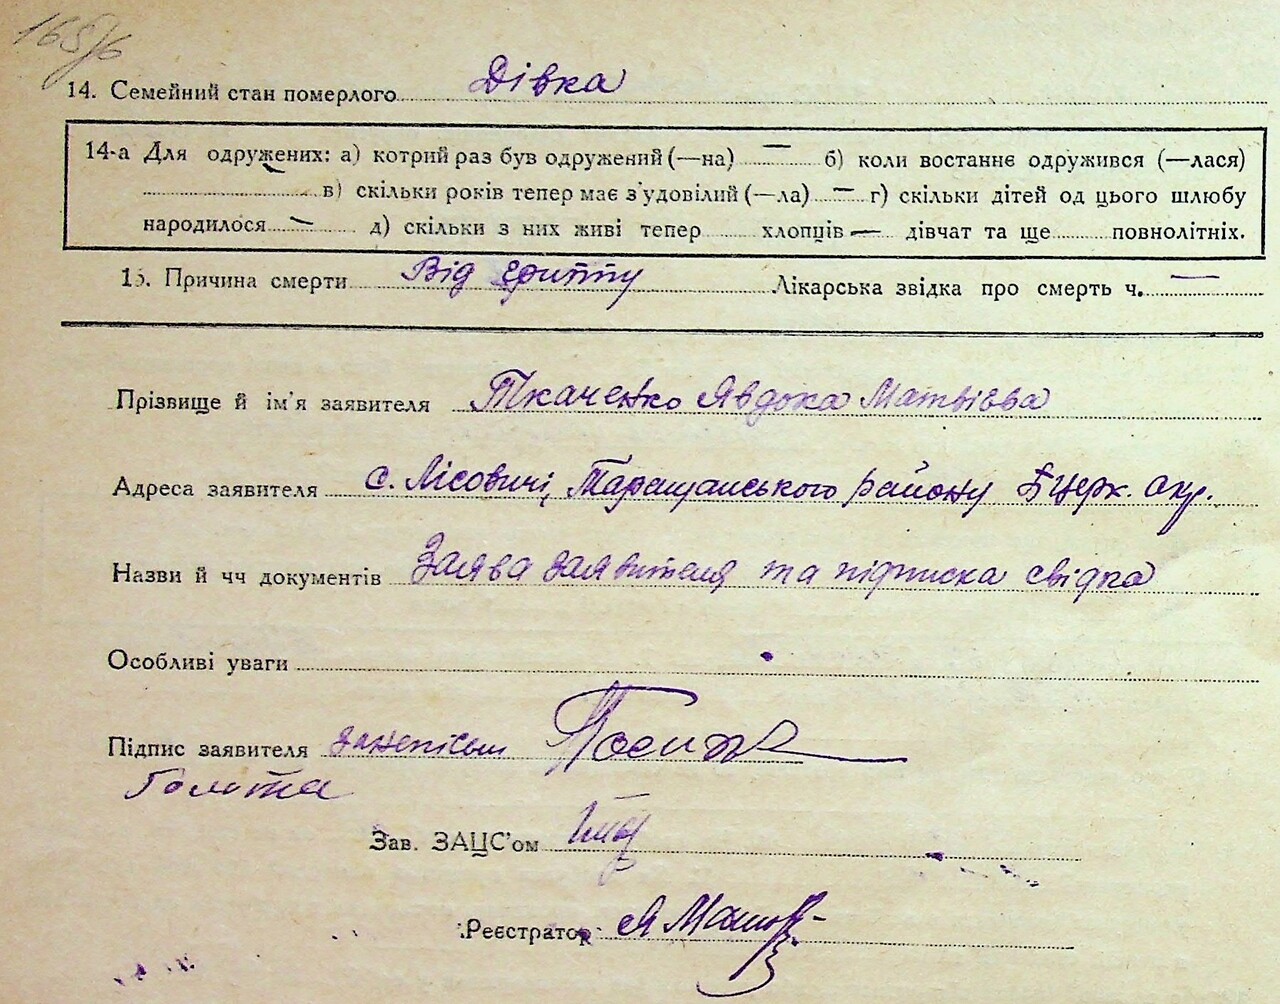 165/6
14. Семейний стан померлого Дівка
14-а Для одружених: а) котрий раз був одружений (—на) — б) коли востаннє одружився (—лася)
в) скільки років тепер має з'удовілий (—ла) — г) скільки дітей од цього шлюбу
народилося — д) скільки з них живі тепер хлопців — дівчат та ще повнолітніх.
15. Причина смерти Від грипту Лікарська звідка про смерть ч. —
Прізвище й ім'я заявителя Ткаченко Явдоха Матвієва
Адреса заявителя с. Лісовичі, Таращанського району Б Церк. окр.
Назви й чч документів Заява заявителя та підписка свідка
Особливі уваги
Підпис заявителя
Зав. ЗАЦС'ом
Реєстратор